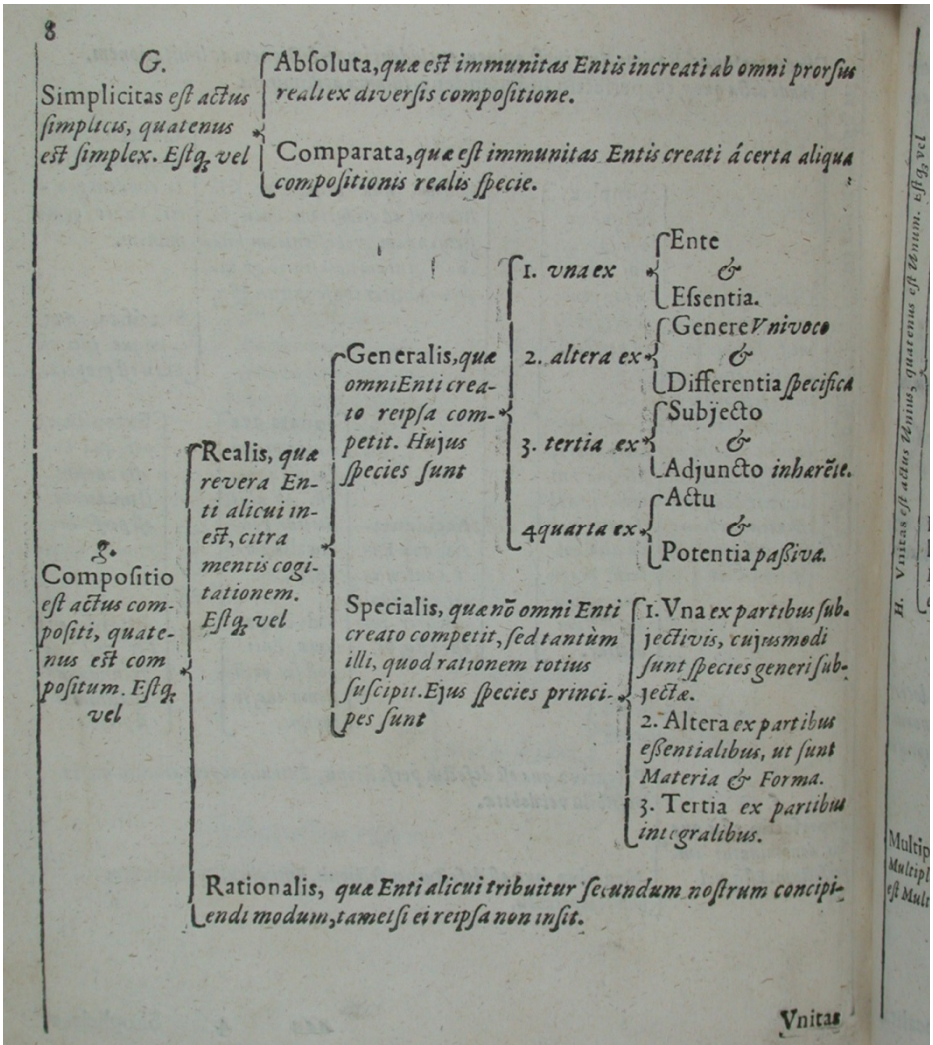 8
G.
Simplicitas est actus
simplicis, quatenus
est simplex. Estq; vel
Absoluta, quæ est immunitas Entis increati ab omni prorsus
reali ex diversis compositione.
Comparata, quæ est immunitas Entis creati á certa aliqua
compositionis realis specie.
g.
Compositio
est actus com-
positi, quate-
nus est com
positum. Estq;
vel
Realis, quæ
revera En-
ti alicui in-
est, citra
mentis cogi-
tationem.
Estq; vel
Generalis, quæ
omni Enti crea-
to reipsa com-
petit. Hujus
species sunt
1. vna ex
Ente
&
Essentia.
2. altera ex
Genere Vnivoco
&
Differentia specifica
3. tertia ex
Subjecto
&
Adjuncto inhærēte.
4 quarta ex
Actu
&
Potentia passiva.
Specialis, quæ nō omni Enti
creato competit, sed tantùm
illi, quod rationem totius
suscipit. Ejus species princi-
pes sunt
1. Vna ex partibus sub-
jectivis, cujusmodi
sunt species generi sub-
jectæ.
2. Altera ex partibus
essentialibus, ut sunt
Materia & Forma.
3. Tertia ex partibus
integralibus.
Rationalis, quæ Enti alicui tribuitur secundum nostrum concipi-
endi modum, tametsi ei reipsa non insit.
Vnitas
H. Vnitas est actus Unius, quatenus est Unum. Estq; vel
Multip
Multipl
est Mult